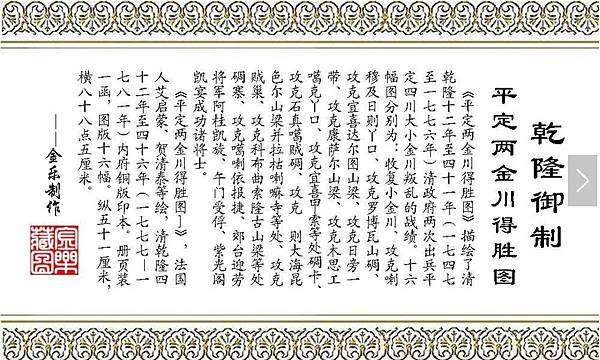 乾隆御制
平定两金川得胜图
《平定两金川得胜图》描绘了清
乾隆十二年至四十一年（一七四七
至一七七六年）清政府两次出兵平
定四川大小金川叛乱的战绩。十六
幅图分别为：收复小金川、攻克喇
穆及日则丫口、攻克罗博瓦山碉、
攻克宜喜达尔图山梁、攻克日旁一
带、攻克康萨尔山梁、攻克木思工
噶克丫口、攻克宜喜甲索等处碉卡、
攻克石真噶贼碉、攻克　则大海昆
色尔山梁并拉枯喇嘛寺等处、攻克
贼巢、攻克科布曲索隆古山梁等处
碉寨、攻克噶喇依报捷、郊台迎劳
将军阿桂凯旋、午门受俘、紫光阁
凯宴成功诸将士。
《平定两金川得胜图］》，法国
人艾启蒙、贺清泰等绘，清乾隆四
十二年至四十六年（一七七七—一
七八一年）内府铜版印本。册页装
一函，图版十六幅。纵五十一厘米，
横八十八点五厘米。
——金乐制作